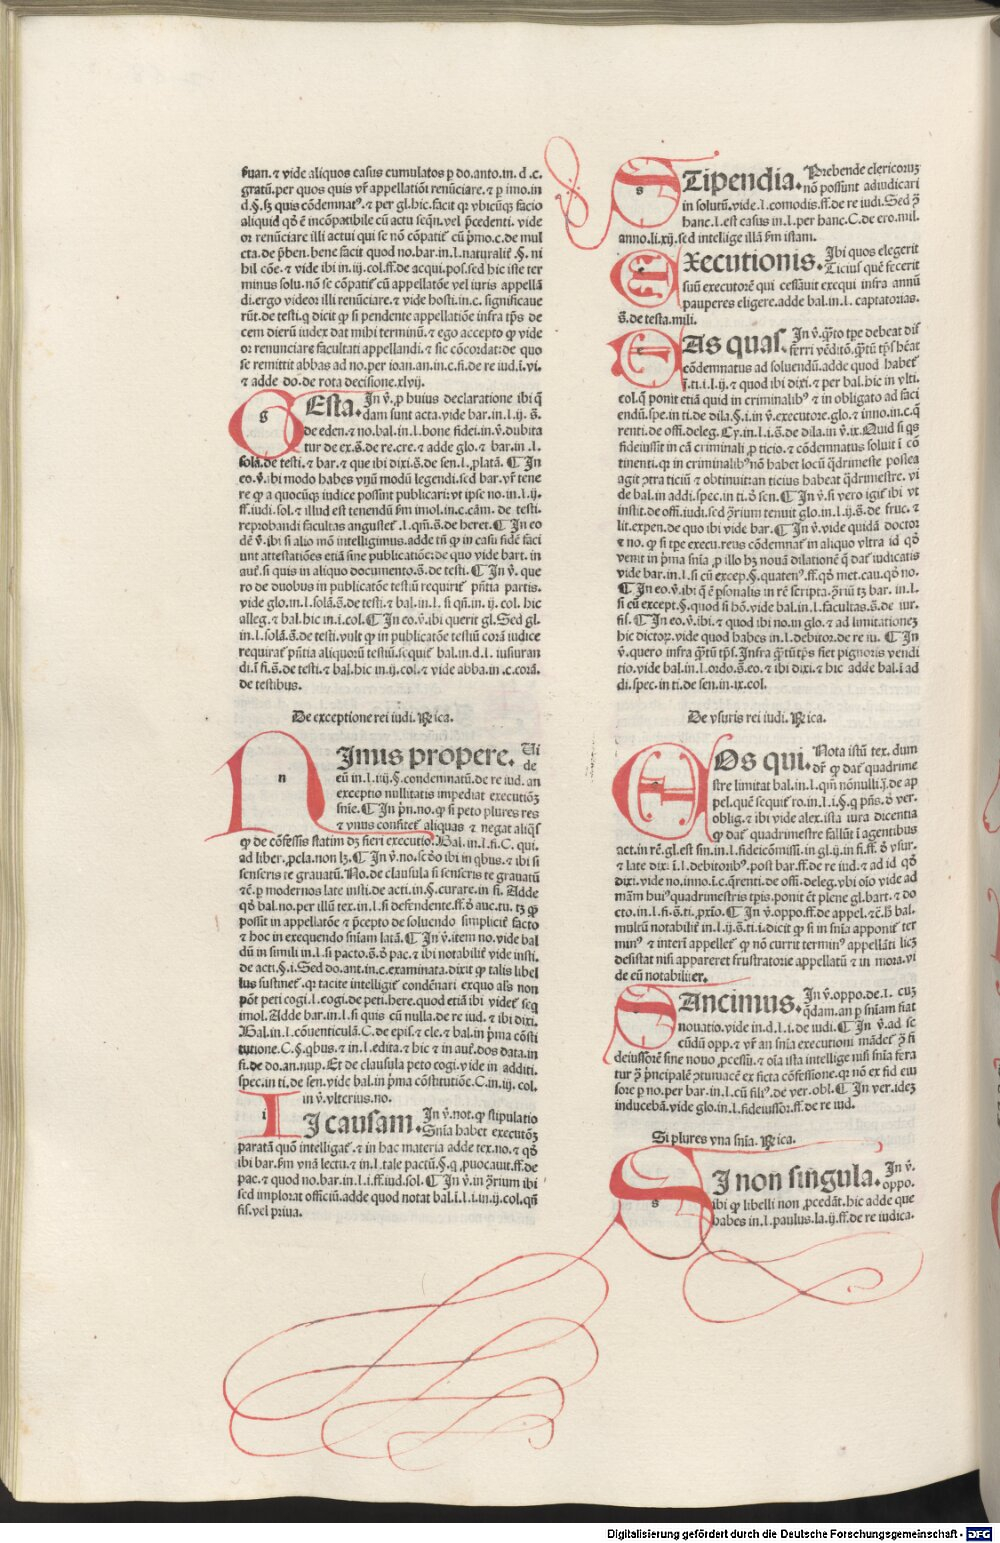 ẜuan. ⁊ vide aliquos casus cumulatos ꝑ do. anto. in. d. c.
gratū. per quos quis vr̄ appellatiōi renūciare. ⁊ ꝑ imo. in
d. §. sꝫ quis cōdemnatꝰ. ⁊ per gl. hic. facit ꝙ vbicūqꝫ facio
aliquid qd̄ ē incōpatibile cū actu seqūn. vel p̄cedenti. vide
or renūciare illi actui qui se nō cōpatit̄ cū p̄mo. c. de mul
cta. de p̄ben. bene facit quod no. bar. in. l. naturalit̄. §. ni
hil cōe. ⁊ vide ibi in. iij. col. ff. de acqui. pos. sed hic iste ter
minus solu. nō se cōpatit̄ cū appellatōe vel iuris appellā
di. ergo videor illi renūciare. ⁊ vide hosti. in. c. significaue
rūt. de testi. q̄ dicit ꝙ si pendente appellatiōe infra tp̄s de
cem dierū iudex dat mihi terminū. ⁊ ego accepto ꝙ vide
or renunciare facultati appellandi. ⁊ sic cōcordat: de quo
se remittit abbas ad no. per ioan. an. in. c. fi. de re iud. ī. vi.
⁊ adde do. de rota decisione. xlvij.
g
Esta. In v̄. ꝓ huius declaratione ibi q̄
dam sunt acta. vide bar. in. l. ij. s̄.
de eden. ⁊ no. bal. in. l. bone fidei. in. v̄. dubita
tur de ex. s̄. de re. cre. ⁊ adde glo. ⁊ bar. in. l.
solā. de testi. ⁊ bar. ⁊ que ibi dixi. s̄. de sen. l. ꝓlatā. ¶ In
eo. v̄. ibi modo habes vnū modū legendi. sed bar. vr̄ tene
re ꝙ a quocūqꝫ iudice possint publicari: vt ipse no. in. l. ij.
ff. iudi. sol. ⁊ illud est tenendū ẜm imol. in. c. cām. de testi.
reprobandi facultas angustet̄. l. qm̄. s̄. de heret. ¶ In eo
dē v̄. ibi si alio mō intelligimus. adde tn̄ ꝙ in casu fidē faci
unt attestatiōes etiā sine publicatiōe: de quo vide bart. in
aut̄. si quis in aliquo documento. s̄. de testi. ¶ In v̄. que
ro de duobus in publicatōe testiū requirit̄ pn̄tia partis.
vide glo. in. l. solā. s̄. de testi. ⁊ bal. in. l. si qn̄. in. ij. col. hic
alleg. ⁊ bal. hic in. i. col. ¶ In eo. v̄. ibi querit gl. Sed gl.
in. l. solā. s̄. de testi. vult ꝙ in publicatōe testiū corā iudice
requirat̄ pn̄tia aliquorū testiū. sequit̄ bal. in. d. l. iusiuran
di. ī fi. s̄. de testi. ⁊ bal. hic in. ij. col. ⁊ vide abba. in. c. corā.
de testibus.
De exceptione rei iudi. Rica.
n
Imus propere. Vi
de
eū in. l. iiij. §. condemnatū. de re iud. an
exceptio nullitatis impediat executiōꝫ
snīe. ¶ In pn̄. no. ꝙ si peto plures res
⁊ vnus confitet̄ aliquas ⁊ negat aliq̄s
ꝙ de cōfessis statim dꝫ fieri executio. Bal. in. l. fi. C. qui.
ad liber. ꝓcla. non lꝫ. ¶ In v̄. no. secūdo ibi in qbus. ⁊ ibi si
senseris te grauatū. No. de clausula si senseris te grauatū
⁊c̄. ꝑ modernos late insti. de acti. in. §. curare. in fi. Adde
qd̄ bal. no. per illū tex. in. l. si defendente. ff. d̄ auc. tu. tꝫ ꝙ
possit in appellatōe ⁊ p̄cepto de soluendo simplicit̄ facto
⁊ hoc in exequendo snīam latā. ¶ In v̄. item no. vide bal
dū in simili in. l. si pacto. s̄. d̄ pac. ⁊ ibi notabilit̄ vide insti.
de acti. §. i. Sed do. ant. in. c. examinata. dixit ꝙ talis libel
lus sustinet̄. qꝛ tacite intelligit̄ condēnari exquo al̄s non
pōt peti cogi. l. cogi. de peti. here. quod etiā ibi videt̄ seq̄
imol. Adde bar. in. l. si quis cū nulla. de re iud. ⁊ ibi dixi.
Bal. in. l. cōuenticulā. C. de epis. ⁊ cle. ⁊ bal. in p̄ma cōsti
tutione. C. §. qbus. ⁊ in. l. edita. ⁊ hic ⁊ in aut̄. dos data. in
fi. de do. an. nup. Et de clausula peto cogi. vide in additi.
spec. in ti. de sen. vide bal. in p̄ma cōstitutiōe. C. in. iij. col.
in v̄. vlterius. no.
i
I causam. In v̄. not. ꝙ stipulatio
Snīa habet executōꝫ
paratā quō intelligat̄. ⁊ in hac materia adde tex. no. ⁊ qd̄
ibi bar. ẜm vnā lectu. ⁊ in. l. tale pactū. §. q̄ ꝓuocauit. ff. de
pac. ⁊ quod no. bar. in. l. i. ff. iud. sol. ¶ In v̄. in q̄rium ibi
sed implorat officiū. adde quod notat bal. ī. l. i. in. ij. col. qn̄
sis. vel priua.
s
Tipendia. Prebende clericorūꝫ
nō possunt adiudicari
in solutū. vide. l. comodis. ff. de re iudi. Sed ꝯ̄
hanc. l. est casus in. l. per hanc. C. de ero. mil.
anno. li. xij. sed intellige illā ẜm istam.
e
Xecutionis. Ibi quos elegerit
Ticius quē fecerit
suū executorē qui cessauit exequi infra annū
pauperes eligere. adde bal. in. l. captatorias.
s̄. de testa. mili.
e
As quas. In v̄. q̄to tp̄e debeat dif
ferri vēditō. q̄tū tp̄s hēat
cōdemnatus ad soluendū. adde quod habet̄
ī. ti. i. l. ij. ⁊ quod ibi dixi. ⁊ per bal. hic in vlti.
col. q̄ ponit etiā quid in criminalibꝰ. ⁊ in obligato ad faci
endū. spe. in ti. de dila. §. i. in v̄. executore. glo. ⁊ inno. in. c. q̄
renti. de offi. deleg. Cy. in. l. i. s̄. de dila. in v̄. ix. Quid si qs
fideiussit in cā criminali ꝓ ticio. ⁊ cōdemnatus soluit ī cō
tinenti. qꝛ in criminalibꝰ nō habet locū q̄drimestre postea
agit ꝯtra ticiū ⁊ obtinuit: an ticius habeat q̄drimestre. vi
de bal. in addi. spec. in ti. d̄ sen. ¶ In v̄. si vero igit̄ ibi vt
instit. de offi. iudi. sed ꝯ̄rium tenuit glo. in. l. ij. s̄. de fruc. ⁊
lit. expen. de quo ibi vide bar. ¶ In v̄. vide quidā doctor
⁊ no. ꝙ si tp̄e execu. reus cōdemnat̄ in aliquo vltra id qd̄
venit in p̄ma snīa ꝓ illo hꝫ nouā dilationē q̄ dat̄ iudicatis
vide bar. in. l. si cū excep. §. quatenꝰ. ff. qd̄ met. cau. qd̄ no.
¶ In eo. v̄. ibi q̄ ē ꝑsonalis in rē scripta. ꝯ̄riū tꝫ bar. in. l.
si cū except. §. quod si hō. vide bal. in. l. facultas. s̄. de iur.
fis. ¶ In eo. v̄. ibi. ⁊ quod ibi no. in glo. ⁊ ad limitationeꝫ
hic dictoꝝ. vide quod habes in. l. debitor. de re iu. ¶ In
v̄. quero infra q̄tū tp̄s. Infra q̄tū tp̄s fiet pignoris vendi
tio. vide bal. in. l. ordo. s̄. eo. ⁊ ibi dixi. ⁊ hic adde bal. ī ad
di. spec. in ti. de sen. in. ix. col.
De vsuris rei iudi. Rica.
e
Os qui. Nota istū tex. dum
dr̄ ꝙ dat̄ quadrime
stre limitat bal. in. l. qm̄ nōnulli. ī. de ap
pel. quē sequit̄ ro. in. l. i. §. q̄ pn̄s. d̄ ver.
oblig. ⁊ ibi vide alex. ista iura dicentia
ꝙ dat̄ quadrimestre fallūt ī agentibus
act. in rē. gl. est sin. in. l. fideicōmissi. in gl. ij. in fi. ff. d̄ vsur.
⁊ late dixi ī. l. debitoribꝰ. post bar. ff. de re iud. ⁊ ad id qd̄
dixi. vide no. inno. ī. c. q̄renti. de offi. deleg. vbi oīo vide ad
mām huiꝰ quadrimestris tp̄is. ponit ēt plene gl. bart. ⁊ do
cto. in. l. fi. s̄. ti. ꝓxīo. ¶ In v̄. oppo. ff. de appel. ⁊c̄. hꝫ bal.
multū notabilit̄ in. l. ij. s̄. ti. i. dicit ꝙ si in snīa apponit̄ ter
minꝰ ⁊ interī appellet̄ ꝙ nō currit terminꝰ appellāti licꝫ
desistat nisi appareret frustratorie appellatū ⁊ in mora. vi
de eū notabiliter.
s
Ancimus. In v̄. oppo. de. l. cuꝫ
q̄dam. an ꝑ snīam fiat
nouatio. vide in. d. l. i. de iudi. ¶ In v̄. ad se
cūdū opp. ⁊ vr̄ an snīa executioni mādet̄ ꝯ̄ fi
deiussorē sine nouo ꝓcessu. ⁊ oīa ista intellige nisi snīa fera
tur ꝯ̄ p̄ncipalē ꝯtumacē ex ficta cōfessione. qꝛ nō ex fid eiu
sore ꝓ no. per bar. in. l. cū filiꝰ. de ver. obl. ¶ In ver. ideꝫ
inducebā. vide glo. in. l. fideiussor. ff. de re iud.
Si plures vna snīa. Rica.
s
I non singula. In v̄.
oppo.
ibi ꝙ libelli non ꝓcedāt. hic adde que
habes in. l. paulus. la. ij. ff. de re iudica.
Digitalisierung gefördert durch die Deutsche Forschungsgemeinschaft - DFG